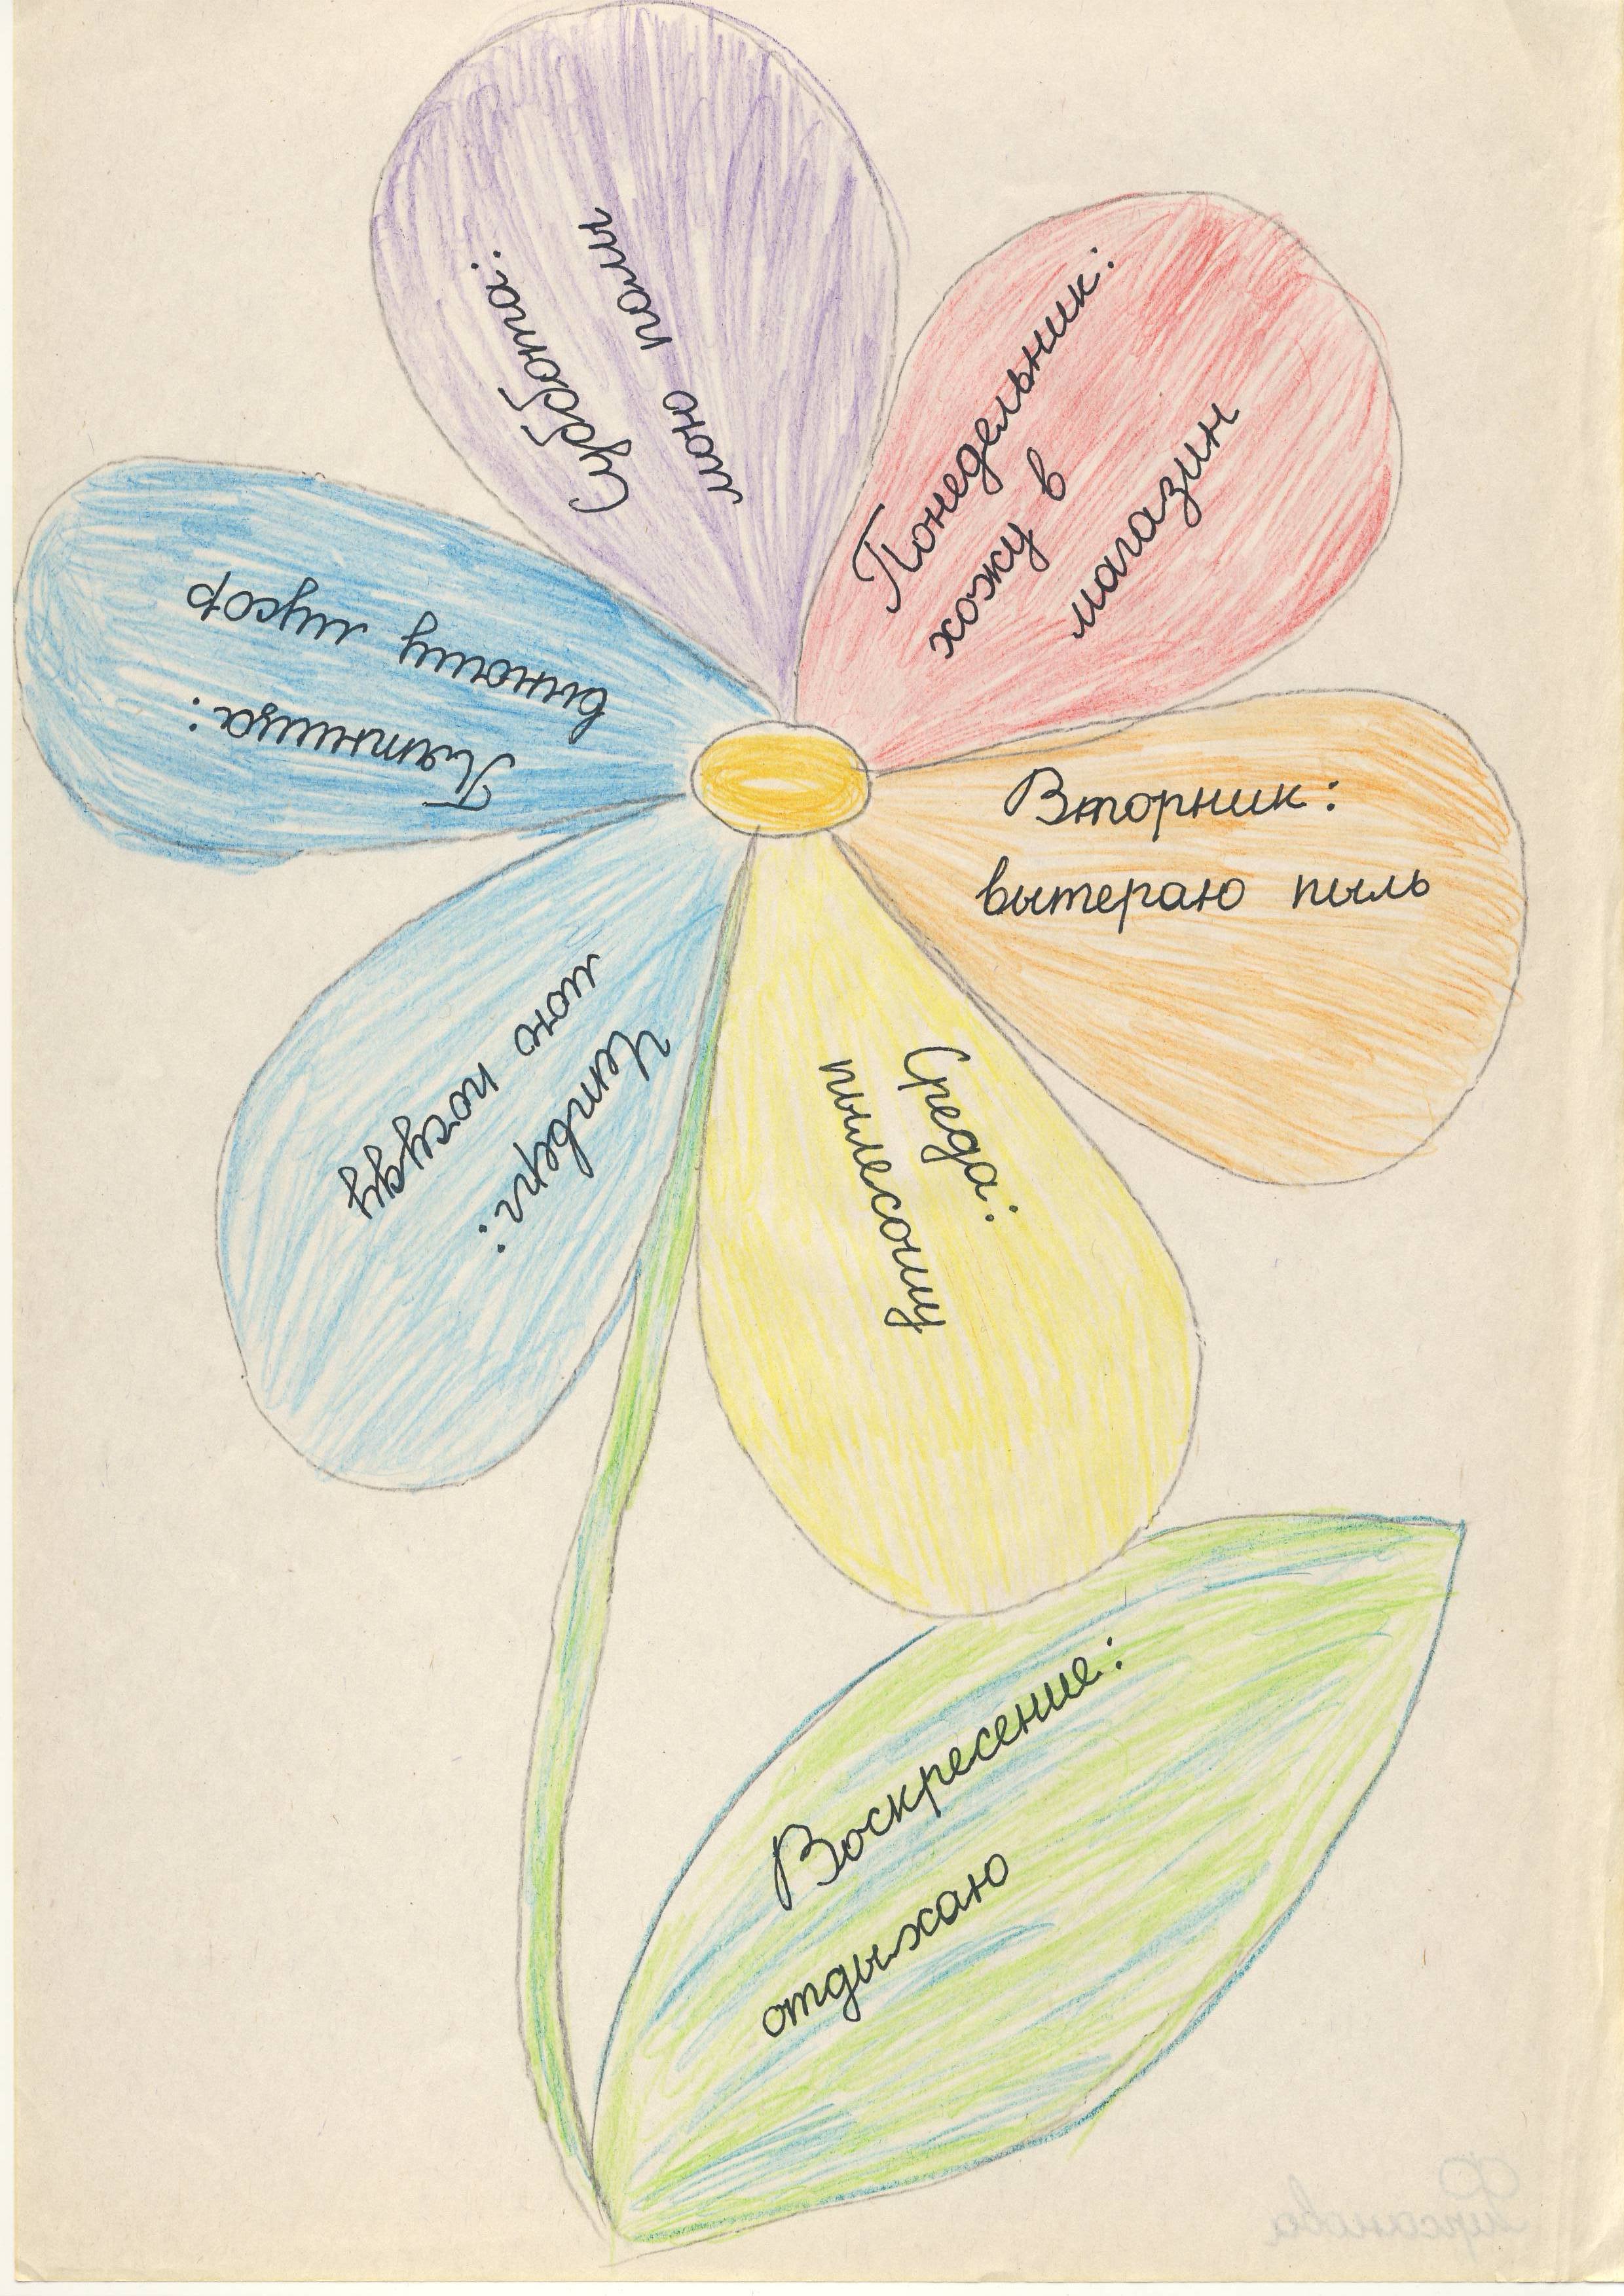 Понедельник:
хожу в
магазин
Вторник:
вытераю пыль
Среда:
пылесошу
Четверг:
мою посуду
Пятница:
выношу мусор
Суббота:
мою полы
Воскресение:
отдыхаю